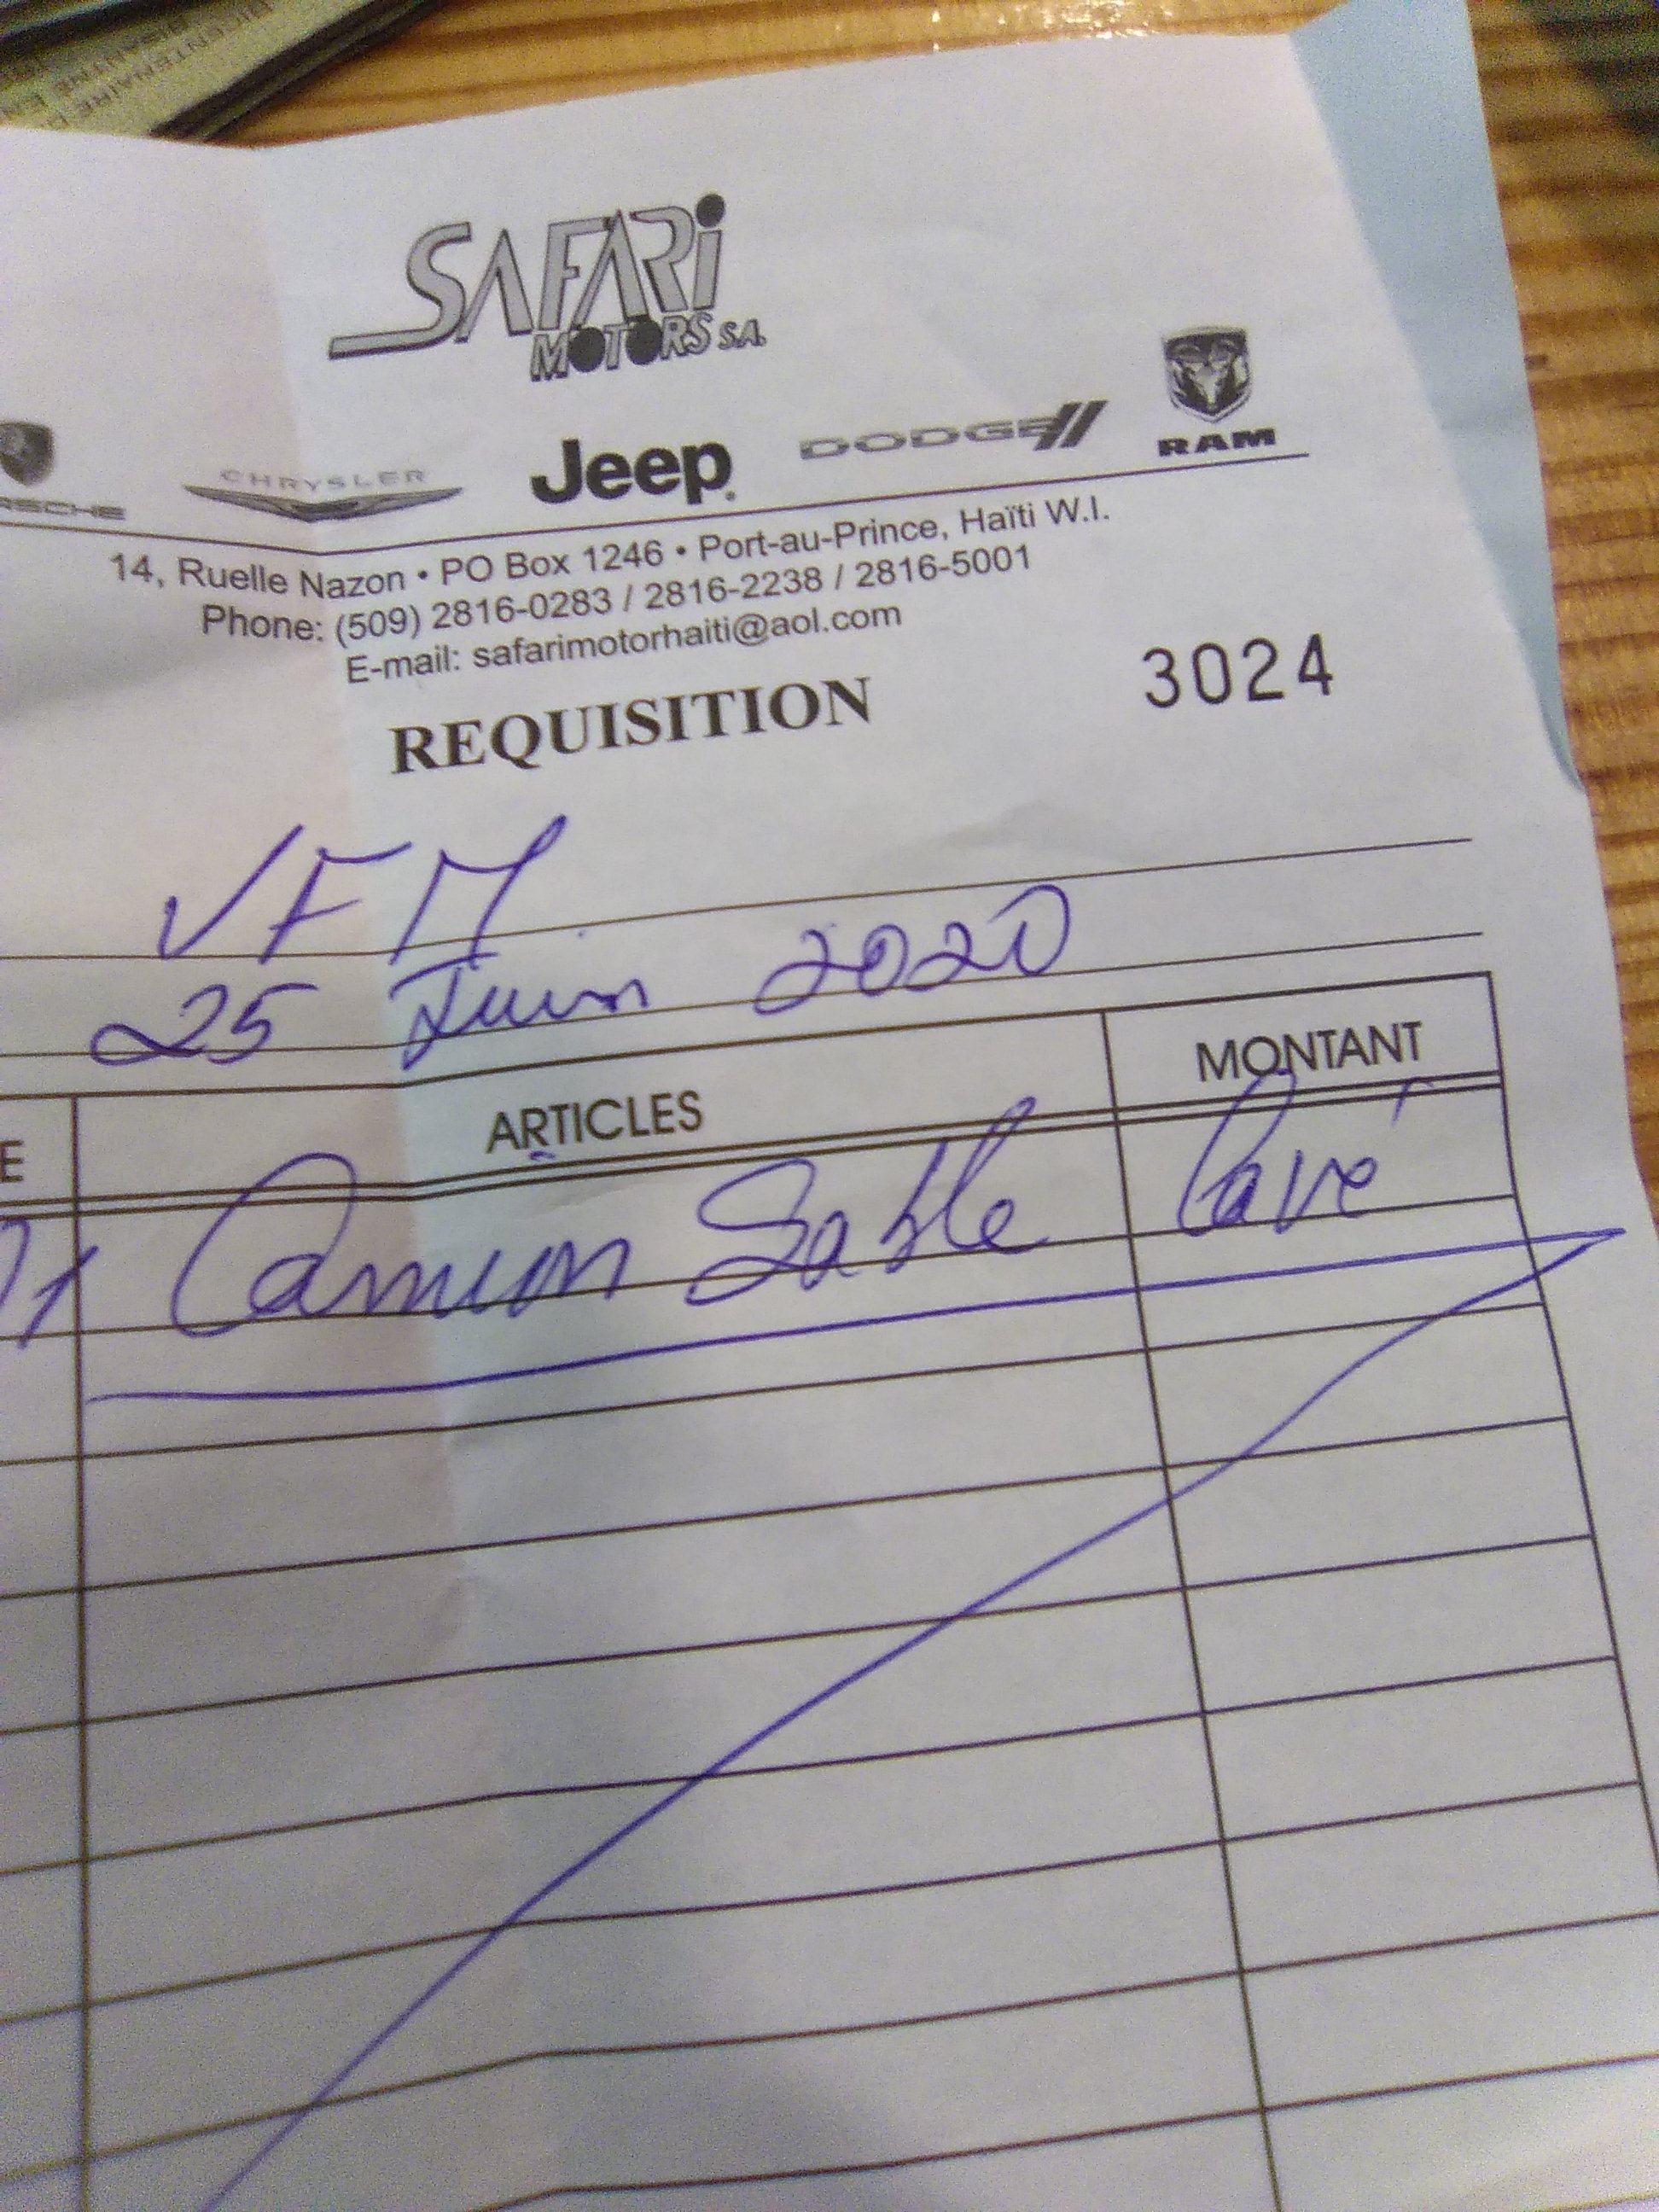 BICENTENAIRE D
SAFARi
MOTORS S.A.
RSCHE CHRYSLER Jeep DODGE RAM
14, Ruelle Nazon • PO Box 1246 • Port-au-Prince, Haïti W.I.
Phone: (509) 2816-0283 / 2816-2238 / 2816-5001
E-mail: safarimotorhaiti@aol.com
REQUISITION 3024
VFM
25 Juin 2020
E ARTICLES MONTANT
01 Camion Sable Lavé